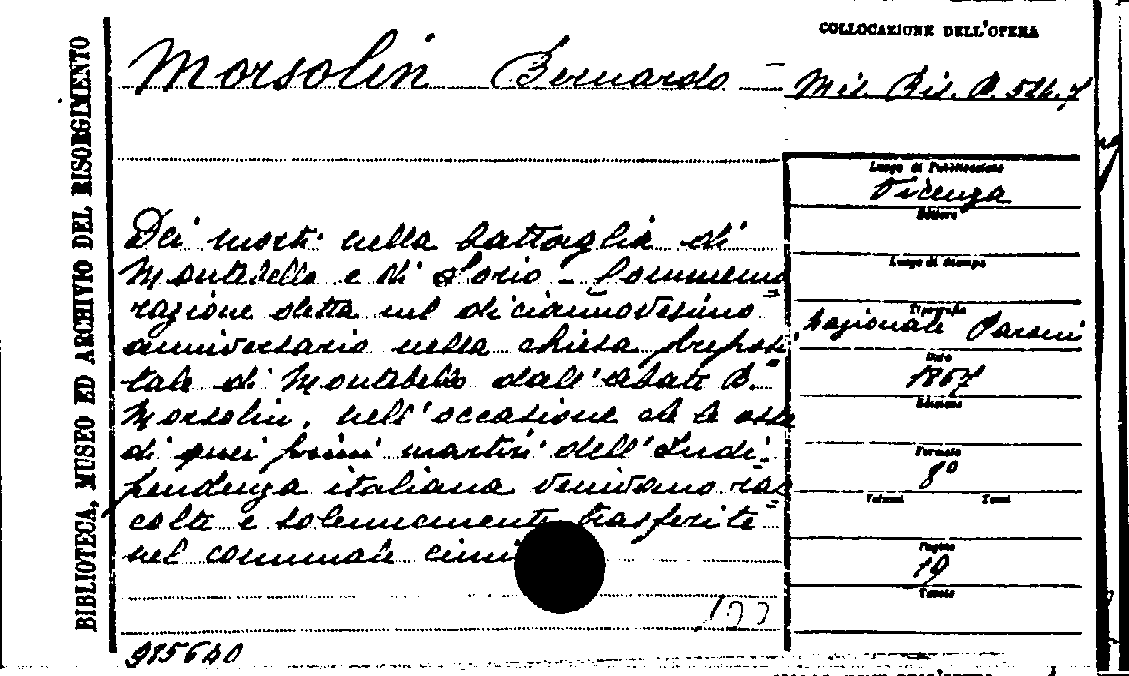 BIBLIOTECA, MUSEO ED ARCHIVIO DEL RISORGIMENTO
COLLOCAZIONE DELL'OPERA
Morsolin Bernardo -
Mil. Ris. B. 524.7
Luogo di Pubblicazione
Vicenza
Editore
Luogo di Stampa
Tipografia
Nazionale Paroni
Data
1867
Edizione
Formato
8°
Volumi Tomi
Pagine
19
Tavole
Dei morti nella battaglia di
Montebello e di Sorio - Commemo
razione detta nel diciannovesimo
anniversario nella chiesa preposi
tale di Montebello dall'abate B.
Morsolin, nell'occasione che le ossa
di quei primi martiri dell'Indi
pendenza italiana venivano rac
colte e solennemente trasferite
nel comunale cimi
915640